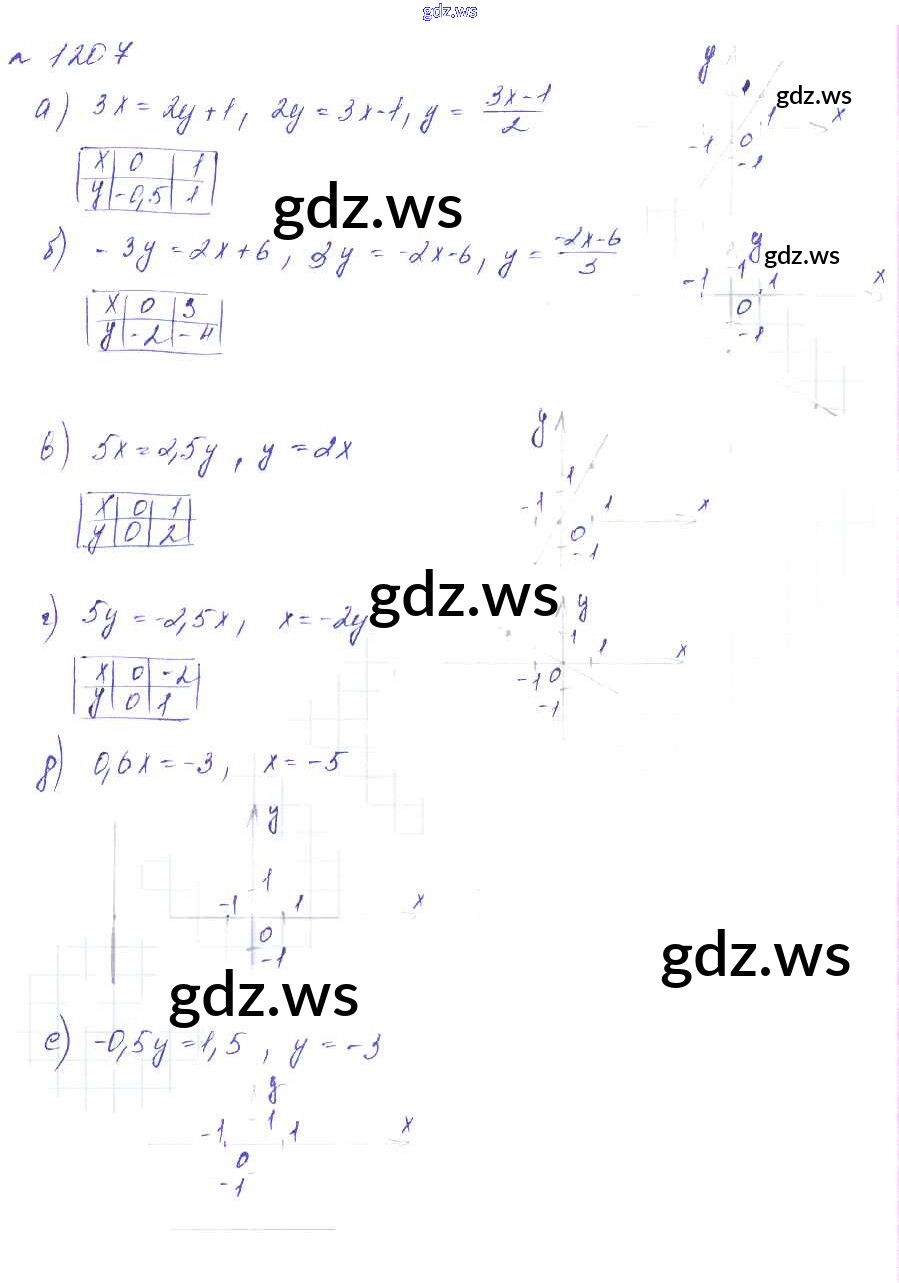 gdz.ws
n 1207
а) 3x = 2y + 1, 2y = 3x - 1, y = (3x-1)/2
x 0 1
y -0,5 1
y
gdz.ws
1 x
-1 0
-1
gdz.ws
б) - 3y = 2x + 6, 3y = -2x - 6, y = (-2x-6)/3
x 0 3
y -2 -4
y
gdz.ws
-1 1 1 x
0
-1
в) 5x = 2,5y, y = 2x
x 0 1
y 0 2
y
1
-1 1 x
0
-1
gdz.ws
г) 5y = -2,5x, x = -2y
x 0 -2
y 0 1
y
1 1 x
-1 0
-1
д) 0,6x = -3, x = -5
y
1
-1 1 x
0
-1
gdz.ws
gdz.ws
е) -0,5y = 1,5, y = -3
y
1
-1 1 x
0
-1